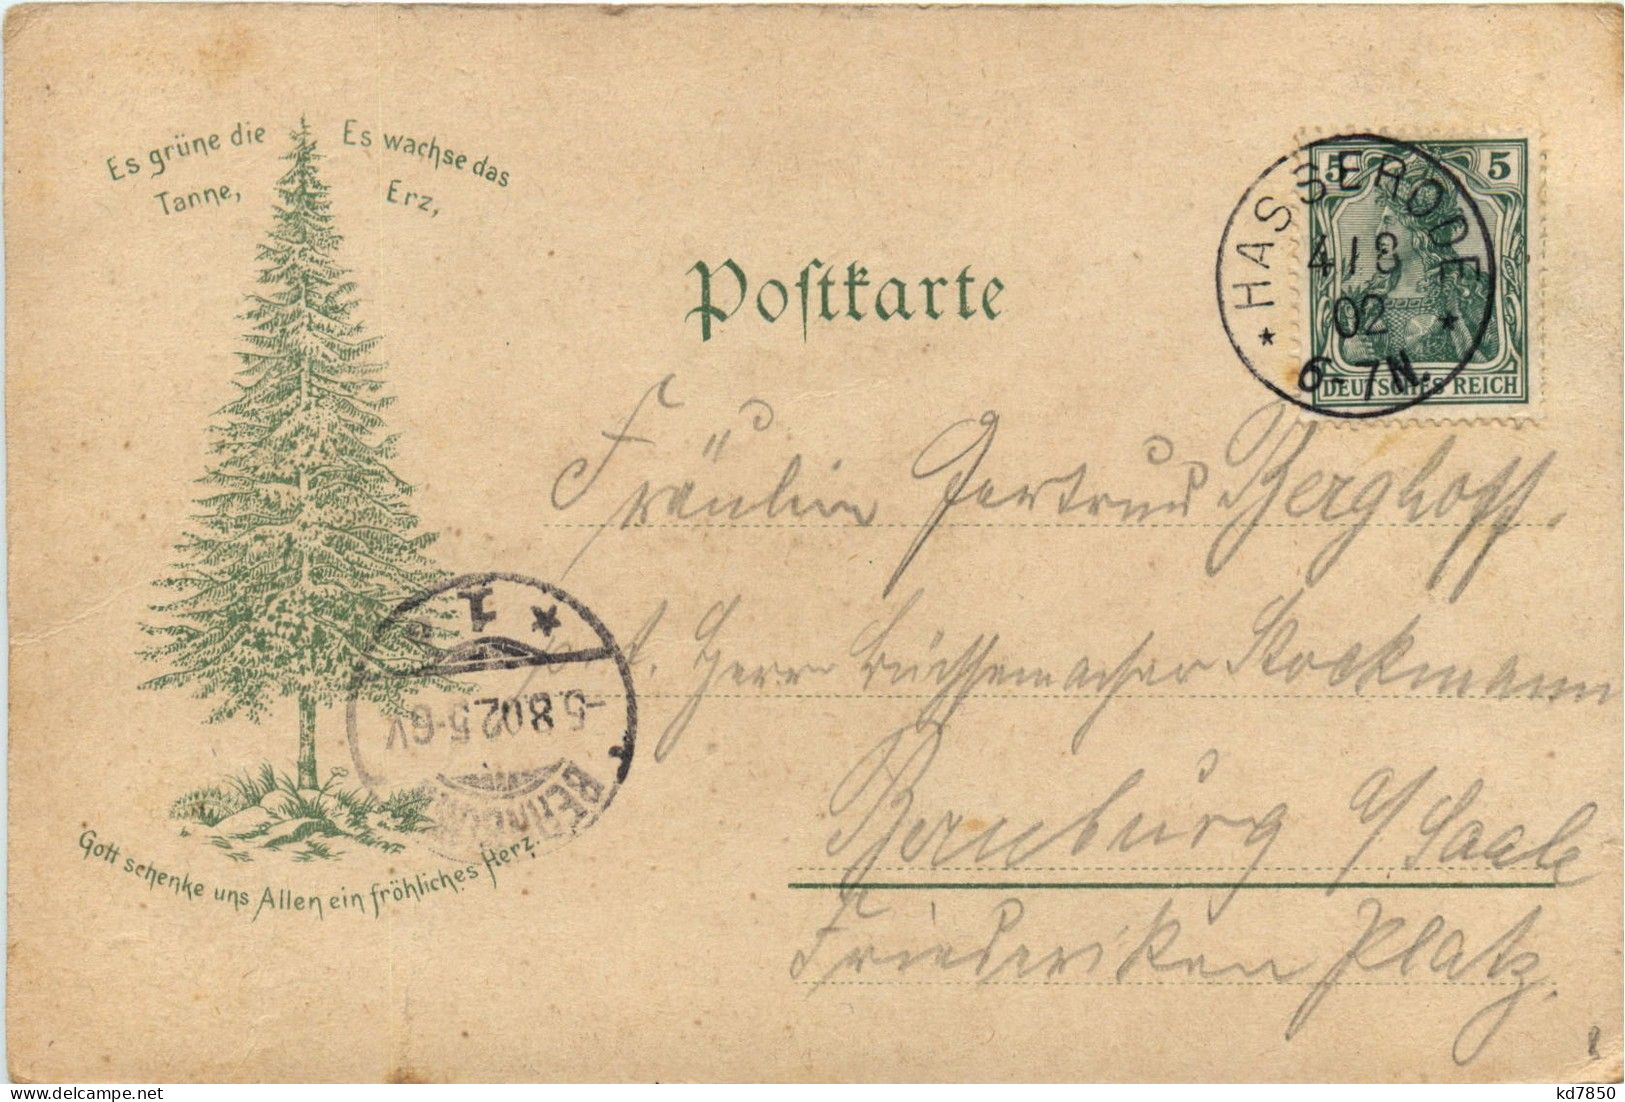 Es grüne die Tanne,
Es wachse das Erz,
Gott schenke uns Allen ein fröhliches Herz.
Postkarte
5 5
DEUTSCHES REICH
* HASSERODE *
4/8
02
6-7N.
Fräulein Gertrud Berghoff.
Herrn Büchsenmacher Stockmann
Bernburg a/Saale
Friederiken Platz.
* 1
-5.8.02.5-6V
delcampe.net
kd7850